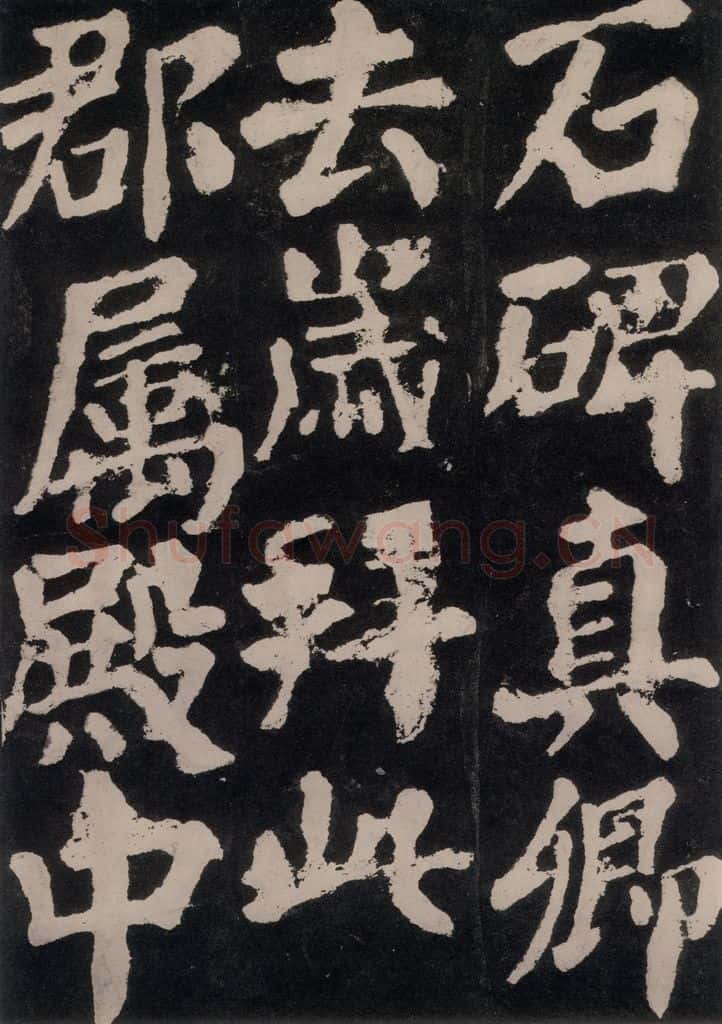 石碑真卿
去歳拜此
郡属殿中
Shufawang.CN